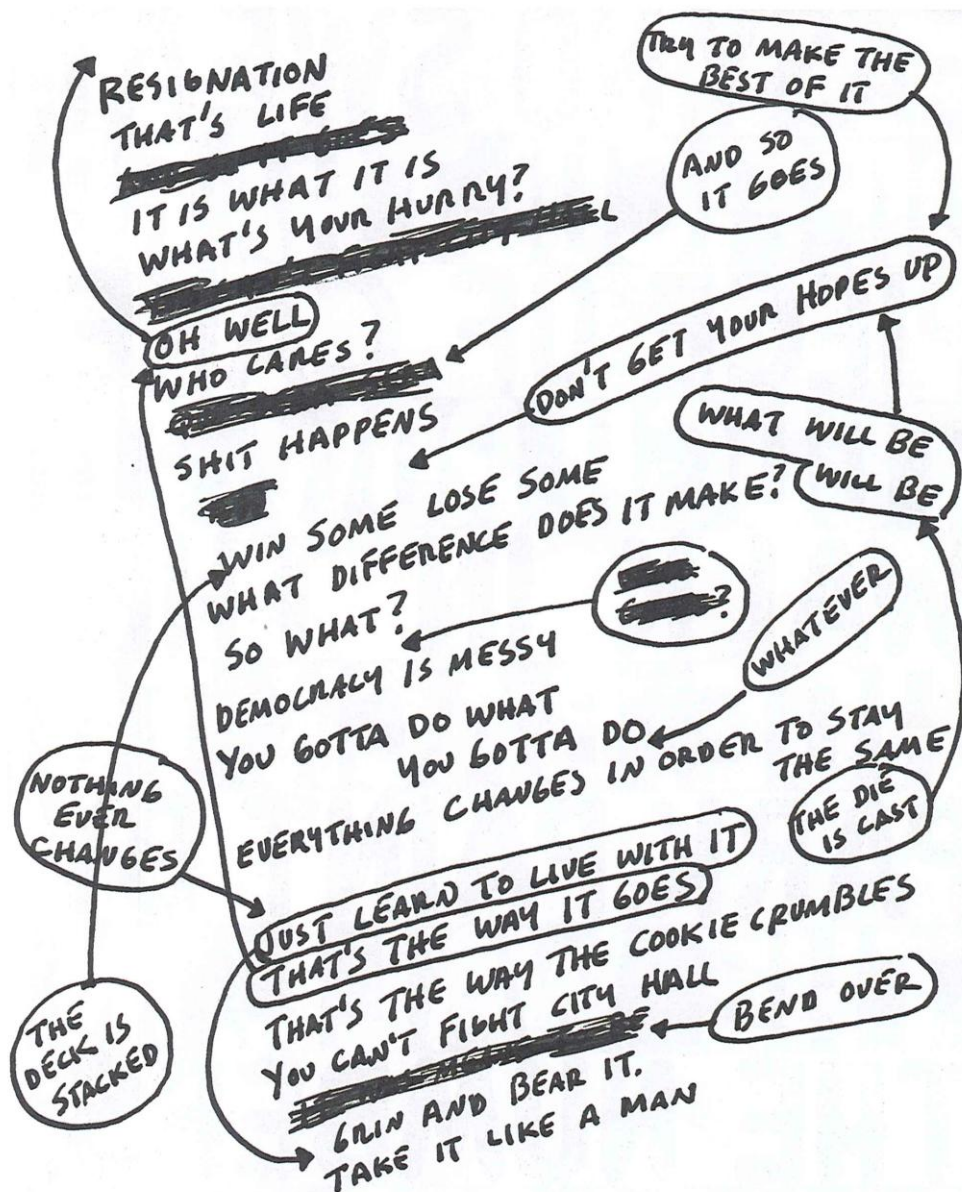 RESIGNATION
THAT'S LIFE
IT IS WHAT IT IS
WHAT'S YOUR HURRY?
OH WELL
WHO CARES?
SHIT HAPPENS
WIN SOME LOSE SOME
WHAT DIFFERENCE DOES IT MAKE?
SO WHAT?
DEMOCRACY IS MESSY
YOU GOTTA DO WHAT
YOU GOTTA DO
EVERYTHING CHANGES IN ORDER TO STAY
THE SAME
JUST LEARN TO LIVE WITH IT
THAT'S THE WAY IT GOES
THAT'S THE WAY THE COOKIE CRUMBLES
YOU CAN'T FIGHT CITY HALL
GRIN AND BEAR IT.
TAKE IT LIKE A MAN
TRY TO MAKE THE
BEST OF IT
AND SO
IT GOES
DON'T GET YOUR HOPES UP
WHAT WILL BE
WILL BE
?
WHATEVER
THE DIE
IS CAST
BEND OVER
NOTHING
EVER
CHANGES
THE
DECK IS
STACKED